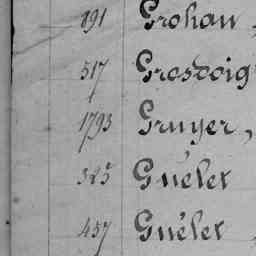 891 Grohan,
517 Grosdoig
1793 Gruyer,
325 Guélet
457 Guélet,